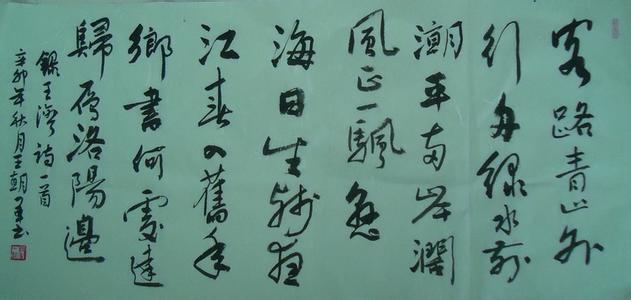 客路青山外
行舟綠水前
潮平兩岸濶
風正一颿懸
海日生殘夜
江春入舊年
鄉書何處達
歸雁洛陽邊
錄王灣詩一首
辛卯年秋月王朝書